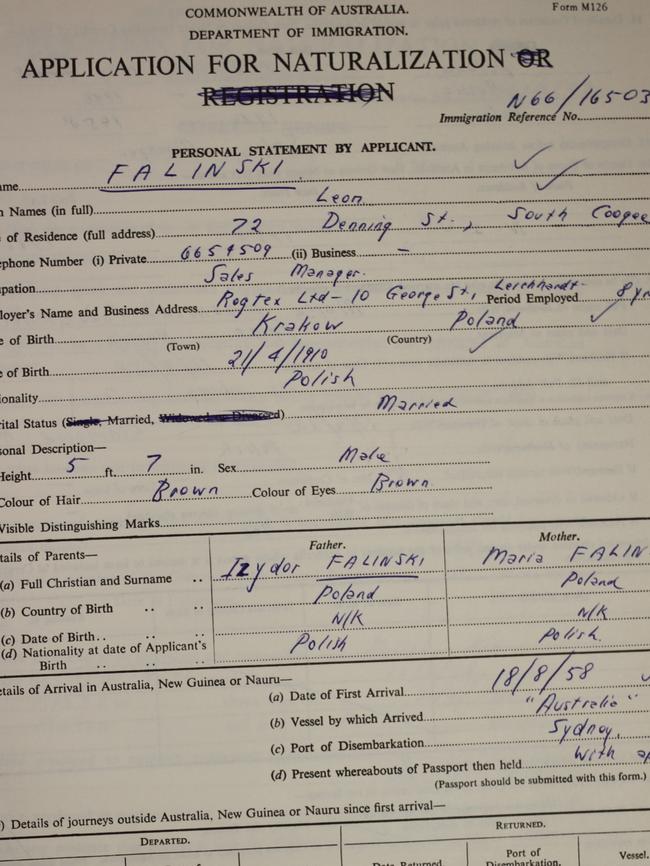 COMMONWEALTH OF AUSTRALIA.
Form M126
DEPARTMENT OF IMMIGRATION.
APPLICATION FOR NATURALIZATION OR
REGISTRATION
N66/16503
Immigration Reference No.
PERSONAL STATEMENT BY APPLICANT.
ame FALINSKI
n Names (in full) Leon
of Residence (full address) 72 Denning St., South Coogee
ephone Number (i) Private 6659509 (ii) Business –
upation Sales Manager.
loyer's Name and Business Address Rogtex Ltd – 10 George St, Leichhardt Period Employed 8 yr
e of Birth Krakow Poland
(Town) (Country)
e of Birth 21/4/1910
ionality Polish
rital Status (Single, Married, Widowed or Divorced) Married
sonal Description—
Height 5 ft. 7 in. Sex Male
Colour of Hair Brown Colour of Eyes Brown
Visible Distinguishing Marks
Father. Mother.
etails of Parents—
(a) Full Christian and Surname .. Izydor FALINSKI Maria FALIN
(b) Country of Birth .. .. Poland Poland
(c) Date of Birth .. .. .. N/K N/K
(d) Nationality at date of Applicant's Birth .. .. .. Polish Polish.
etails of Arrival in Australia, New Guinea or Nauru—
(a) Date of First Arrival 18/8/58
(b) Vessel by which Arrived "Australia"
(c) Port of Disembarkation Sydney.
(d) Present whereabouts of Passport then held With ap
(Passport should be submitted with this form.)
) Details of journeys outside Australia, New Guinea or Nauru since first arrival—
DEPARTED. RETURNED.
Date Returned Port of Disembarkation. Vessel.